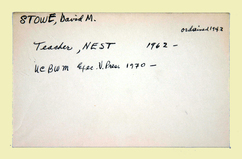 STOWE, David M.
ordained 1943
Teacher, NEST 1962 -
UCBWM Exec. V. Pres 1970 -